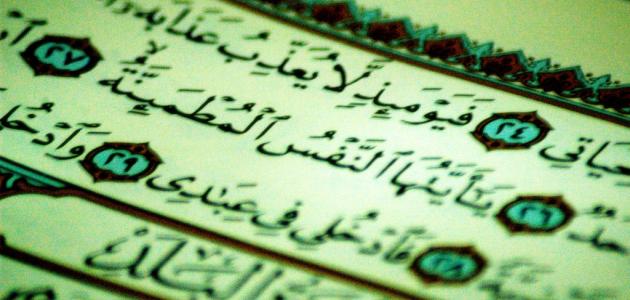 لِحَيَاتِى ٢٤ فَيَوْمَئِذٍ لَّا يُعَذِّبُ عَذَابَهُ
ـحَدٌ ٢٦ يَٰٓأَيَّتُهَا ٱلنَّفْسُ ٱلْمُطْمَئِنَّةُ ٢٧
٢٨ فَٱدْخُلِى فِى عِبَٰدِى ٢٩ وَٱدْخُلِى
البلد